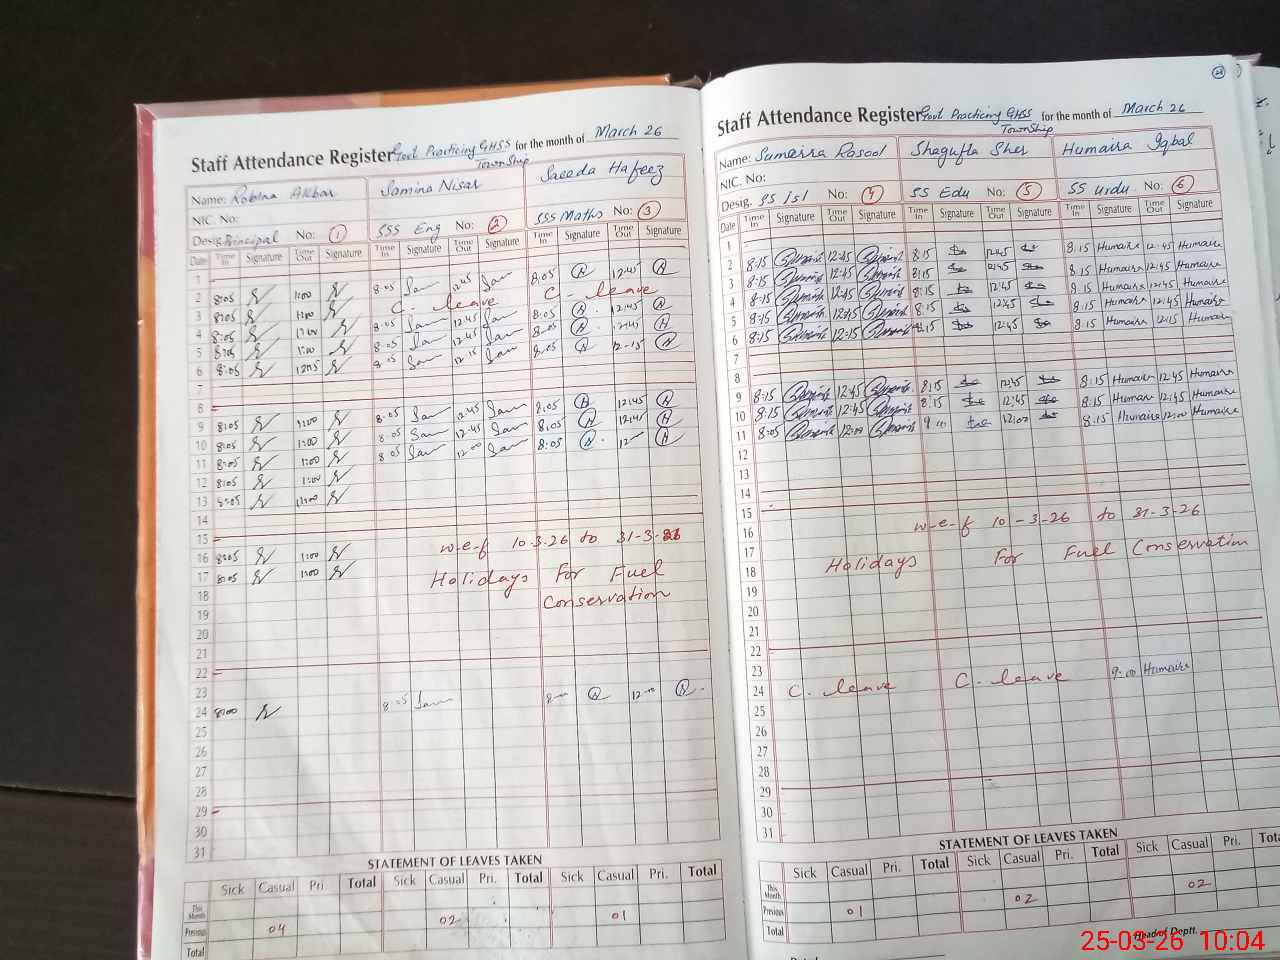 Staff Attendance Register Govt Practicing GHSS Township for the month of March 26
Name: Robina Akbar Samina Nisar Saeeda Hafeez
NIC. No:
Desig. Principal No: 1 SSS Eng No: 2 SSS Maths No: 3
Date Time In Signature Time Out Signature Time In Signature Time Out Signature Time In Signature Time Out Signature
1
2 8:05 1:00 8:05 12:45 8:05 12:45
3 8:05 1:00 C. leave C. leave
4 8:05 1:00 8:05 12:45 8:05 12:45
5 8:05 1:00 8:05 12:45 8:05 12:45
6 8:05 12:15 8:05 12:15 8:05 12-15
7
8
9 8:05 1:00 8:05 12:45 8:05 12:45
10 8:05 1:00 8:05 12:45 8:05 12:45
11 8:05 1:00 8:05 12:00 8:05 12
12 8:05 1:00
13 8:05 1:00
14
15
16 8:05 1:00 w-e-f 10-3-26 to 31-3-26
17 8:05 1:00 Holidays For Fuel
18 Conservation
19
20
21
22
23
24 8:00 8:05 8 12
25
26
27
28
29
30
31
STATEMENT OF LEAVES TAKEN
Sick Casual Pri. Total Sick Casual Pri. Total Sick Casual Pri. Total
This Month
Previous 04 02 01
Total
28
Staff Attendance Register Govt Practicing GHSS Township for the month of March 26
Name: Sumerra Rasool Shagufta Sher Humaira Iqbal
NIC. No:
Desig. SS Isl No: 4 SS Edu No: 5 SS Urdu No: 6
Date Time In Signature Time Out Signature Time In Signature Time Out Signature Time In Signature Time Out Signature
1
2 8:15 12:45 8:15 12:45 8:15 Humaira 12:45 Humaira
3 8:15 12:45 8:15 12:45 8:15 Humaira 12:45 Humaira
4 8:15 12:45 8:15 12:45 8:15 Humaira 12:45 Humaira
5 8:15 12:45 8:15 12:45 8:15 Humaira 12:45 Humaira
6 8:15 12:15 8:15 12:45 8:15 Humaira 12:15 Humaira
7
8
9 8:15 12:45 8:15 12:45 8:15 Humaira 12:45 Humaira
10 8:15 12:45 8:15 12:45 8:15 Humaira 12:45 Humaira
11 8:05 12:00 9 12:00 8:15 Humaira 12:00 Humaira
12
13
14
15
16 w-e-f 10-3-26 to 31-3-26
17
18 Holidays For Fuel Conservation
19
20
21
22
23
24 C. leave C. leave 9:00 Humaira
25
26
27
28
29
30
31
STATEMENT OF LEAVES TAKEN
Sick Casual Pri. Total Sick Casual Pri. Total Sick Casual Pri. Total
This Month
Previous 01 02 02
Total
Head of Deptt.
25-03-26 10:04